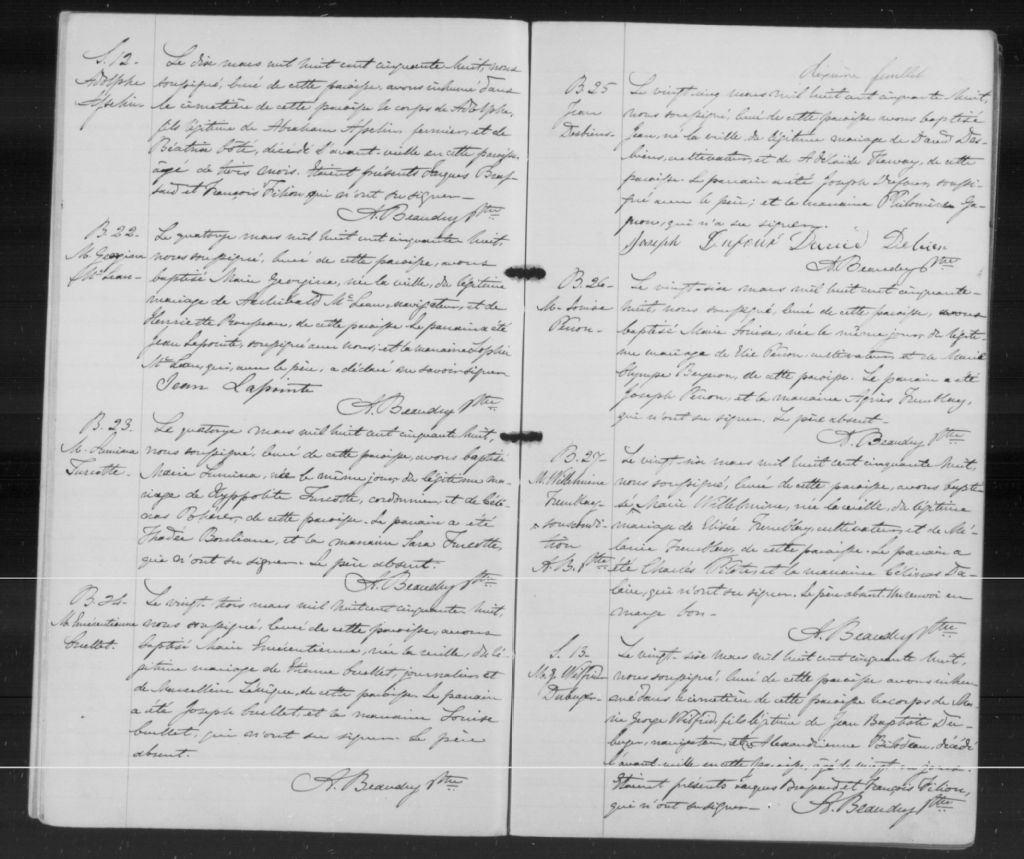 S. 12.
Adolphe
Asselin
Le dix mars mil huit cent cinquante huit, nous
soussigné, curé de cette paroisse, avons inhumé dans
le cimetière de cette paroisse le corps de Adolphe,
fils légitime de Abraham Asselin, fermier, et de
Béatrix Coté, décédé l'avant-veille en cette paroisse
âgé de trois mois. Etaient présents Jacques
et François Filion qui n'ont su signer—
A. Beaudry Ptre
B. 22.
M. Georgina
McLean
Le quatorze mars mil huit cent cinquante huit,
nous soussigné, curé de cette paroisse, avons
baptisé Marie Georgina, née la veille, du légitime
mariage de Archibald McLean, navigateur, et de
Henriette de cette paroisse. Le parrain a été
Jean Lapointe, soussigné avec nous; et la marraine Sophie
McLean, qui, avec le père, a déclaré ne savoir signer
Jean Lapointe
A. Beaudry Ptre
B. 23.
M. Luminza
Turcotte.
Le quatorze mars mil huit cent cinquante huit,
nous soussigné, curé de cette paroisse, avons baptisé
Marie née le même jour, du légitime ma-
riage de Hyppolite Turcotte, cordonnier, et de
de cette paroisse. Le parrain a été
Thadée Bonleane, et la marraine Sara Turcotte,
qui n'ont su signer. Le père absent.
A. Beaudry Ptre
B. 24.
M. Emérentienne
Ouellet.
Le vingt-trois mars mil huit cent cinquante huit,
nous soussigné, curé de cette paroisse, avons
baptisé Marie Emérentienne, née la veille, du lé-
gitime mariage de Etienne Ouellet, journalier, et
de Marcelline Lévêque, de cette paroisse. Le parrain
a été Joseph Ouellet, et la marraine Louise
Ouellet, qui n'ont su signer. Le père
absent.
A. Beaudry Ptre
dixième feuillet
B. 25
Jean
Desbiens.
Le vingt-cinq mars mil huit cent cinquante huit,
nous soussigné, curé de cette paroisse avons baptisé
Jean, né la veille, du légitime mariage de David Des-
biens, cultivateur, et de Adélaïde de cette
paroisse. Le parrain a été Joseph Dufour, soussi-
gné avec le père; et la marraine Philomène Ga-
gnon, qui n'a su signer.
Joseph Dufour David Debien
A. Beaudry Ptre
B. 26
M. Louise
Perron.
Le vingt-six mars mil huit cent cinquante-
huit, nous soussigné, curé de cette paroisse, avons
baptisé Marie Louise, née le même jour, du légiti-
me mariage de Elie Perron, cultivateur, et de Marie
Olympe Bergeron, de cette paroisse. Le parrain a été
Joseph Perron, et la marraine Agnès Tremblay,
qui n'ont su signer. Le père absent—
A. Beaudry Ptre
B. 27
M. Wilelmine
Tremblay
sous condi-
tion
A. B. Ptre
Le vingt-six mars mil huit cent cinquante huit,
nous soussigné, curé de cette paroisse, avons bapti-
sé, Marie Wilelmine, née la veille, du légitime
mariage de Elisée Tremblay, cultivateur, et de Mé-
lanie Tremblay, de cette paroisse. Le parrain a
été Charles et la marraine Da-
laire, qui n'ont su signer. Le père absent. Un renvoi en
marge bon—
A. Beaudry Ptre
S. 13.
M. G. Wilfrid
Duberger
Le vingt-six mars mil huit cent cinquante huit,
nous soussigné, curé de cette paroisse avons inhu-
mé dans le cimetière de cette paroisse le corps de Ma-
rie George Wilfrid, fils légitime de Jean Baptiste Du-
berger, navigateur, et de Alexandrienne Bilodeau, décédé
l'avant-veille en cette paroisse, âgé de vingt jours.
Etaient présents Jacques et François Filion,
qui n'ont su signer—
A. Beaudry Ptre